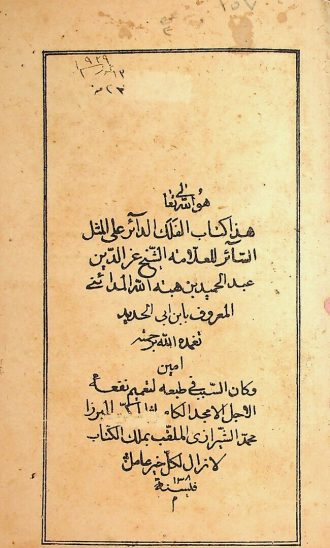 هو الله تعالى
هذا كتاب الفلك الدائر على المثل
السائر للعلامه الشيخ عز الدين
عبد الحميد بن هبة الله المدائني
المعروف بابن ابي الحديد
تغمده الله برحمته
امين
وكان السبب في طبعه لتعميم نفعه
الاجل الامجد الميرزا
محمد الشيرازي الملقب بملك الكتاب
لازال لكل خير عامل
فلسنة
م